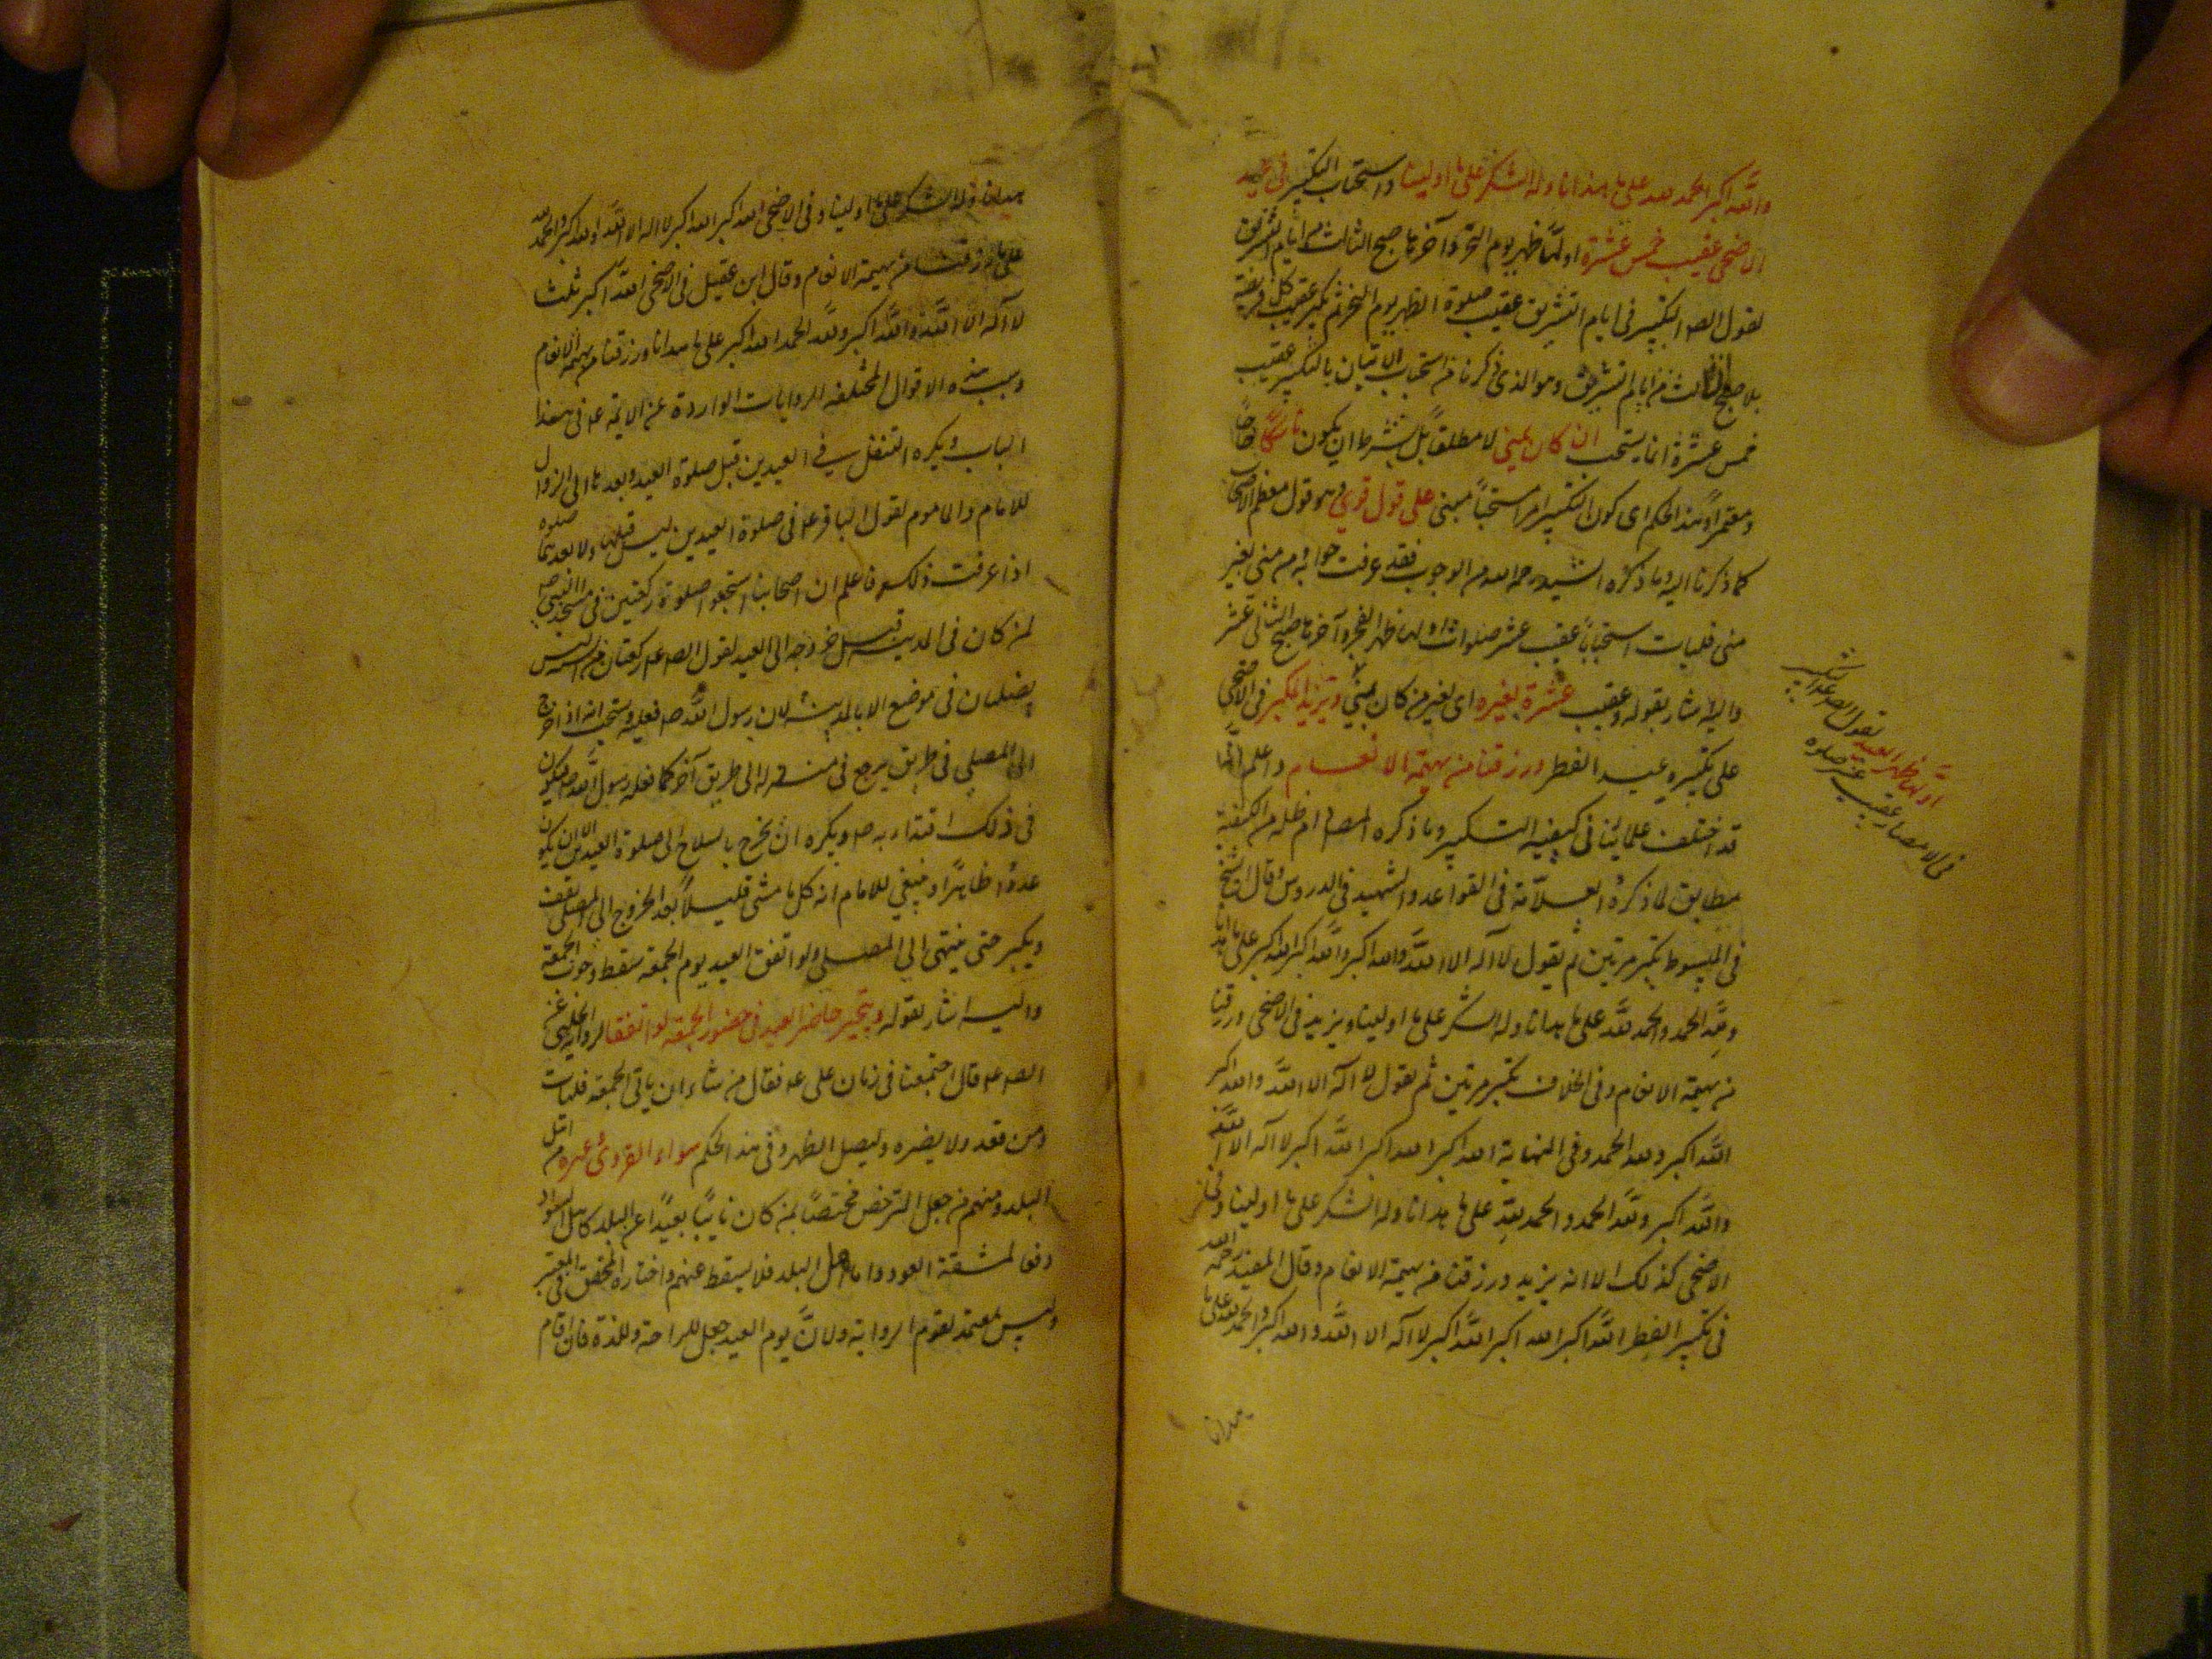 والله اكبر الحمد لله على ما هدانا وله الشكر على ما اولينا واستحباب التكبير في عيد
الاضحى عقيب خمس عشرة اولها ظهر يوم النحر وآخرها صبح الثالث من ايام التشريق
لقول الص التكبير في ايام التشريق عقيب صلوة الظهر يوم النحر ثم يكبر عقيب كل فريضة
صبح الثالث من ايام التشريق وهو الذي ذكرنا من استحباب الاتيان بالتكبير عقيب
خمس عشرة انما يستحب ان كان بمنى لا مطلقا بل بشرط ان يكون ناسكا حاجا
ومعتمرا وهذا الحكم اى كون التكبير امرا مستحبا مبنى على قول قوى وهو قول معظم الاصحاب
كما ذكرنا اليه وما ذكره السيد رحمه الله من الوجوب فقد عرفت جوابه ومن بغير
منى فليات استحبابا عقيب عشر صلوات اولها ظهر وآخرها صبح الثانى عشر
واليه اشار بقوله وعقيب عشرة لغيره اى لغير من كان بمنى ويزيد المكبر في الاضحى
على تكبيره عيد الفطر ورزقنا من بهيمة الانعام واعلم
قد اختلف علمائنا في كيفية التكبير وما ذكره المص دام ظله من الكيفية
مطابق لما ذكره العلامة في القواعد والشهيد في الدروس وقال الشيخ
في المبسوط يكبر مرتين ثم يقول لا اله الا الله والله اكبر والله اكبر الله اكبر على ما هدانا
ولله الحمد والحمد لله على ما هدانا وله الشكر على ما اولينا ويزيد في الاضحى ورزقنا
من بهيمة الانعام وفى الخلاف يكبر مرتين ثم يقول لا اله الا الله والله اكبر
الله اكبر ولله الحمد وفى النهاية الله اكبر الله اكبر الله اكبر لا اله الا الله
والله اكبر ولله الحمد والحمد لله على ما هدانا وله الشكر على ما اولينا وفى
الاضحى كذلك الا انه يزيد ورزقنا من بهيمة الانعام وقال المفيد رحمه الله
في تكبير الفطر الله اكبر الله اكبر الله اكبر لا اله الا الله والله اكبر والحمد لله على ما
هدانا
لقول الص
اولها ظهر العيد
في الامصار عقيب عشر صلوة
هدانا وله الشكر على ما اولينا وفى الاضحى الله اكبر الله اكبر لا اله الا الله والله اكبر والحمد لله
على ما رزقنا من بهيمة الانعام وقال ابن عقيل في الاضحى الله اكبر ثلث
لا اله الا الله والله اكبر ولله الحمد الله اكبر على ما هدانا ورزقنا من بهيمة الانعام
وسبب هذه الاقوال المختلفة الروايات الواردة عن الائمة ع في هذا
الباب ويكره التنفل في العيدين قبل صلوة العيد وبعدها الى الزوال
للامام والماموم لقول الباقر ع في صلوة العيدين ليس قبلها ولا بعدهما صلوة
اذا عرفت ذلك فاعلم ان اصحابنا استحبوا صلوة ركعتين في مسجد النبي ص
لمن كان في المدينة قبل خروجه الى العيد لقول الص ع ركعتان من السنة ليس
يصليان في موضع الا بالمدينة لان رسول الله ص فعله ويستحب انه اذا خرج
الى المصلى في طريق يرجع في منزله الى طريق آخر كما فعله رسول الله ص ليكون
في ذلك اقتداء به ص ويكره ان يخرج بالسلاح الى صلوة العيدين الا ان يكون
عدوا ظاهرا وينبغي للامام انه كل ما مشى قليلا بعد الخروج الى المصلى يقف
ويكبر حتى ينتهى الى المصلى ولو اتفق العيد يوم الجمعة سقط وجوب الجمعة
واليه اشار بقوله ويتخير حاضر العيد في حضور الجمعة لو اتفقا لرواية الحلبي عن
الص ع قال اجتمعنا في زمان على ع فقال من شاء ان ياتى الجمعة فليات
ومن قعد ولا يضره وليصل الظهر وفى هذا الحكم سواء القروى وغيره من اهل
البلد ومنهم من جعل الترخص مختصا لمن كان نائيا بعيدا عن البلد كاهل السواد
دفعا لمشقة العود واما اهل البلد فلا يسقط عنهم واختاره المحقق في المعتبر
وليس بمعتمد لعموم الرواية ولان يوم العيد جعل للراحة وللذة فان اقام